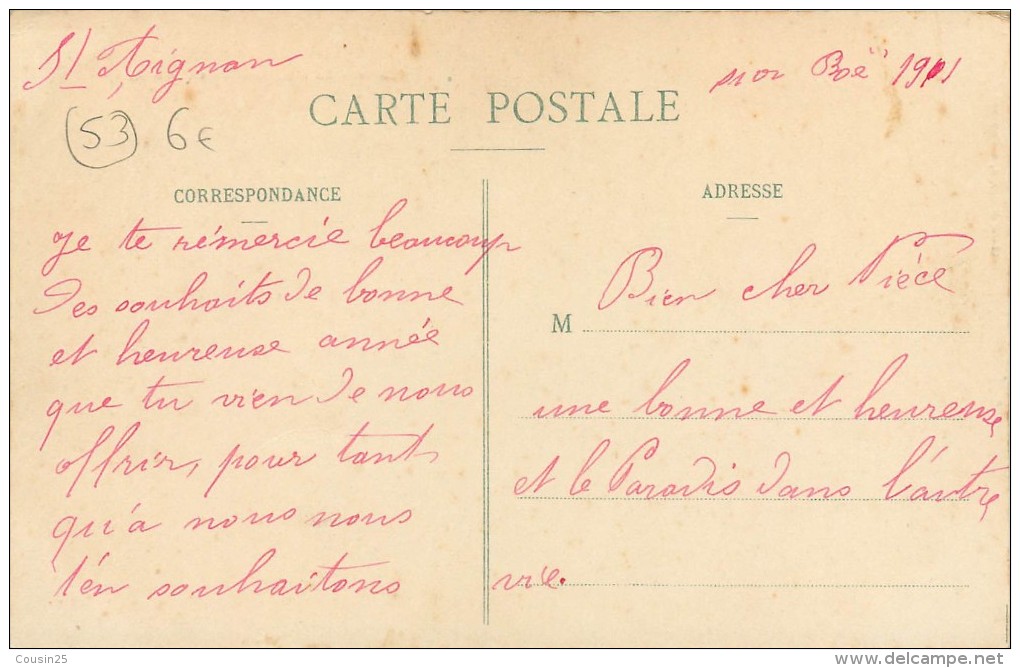 St Aignan
sur Roë 1911
(53) 6€
CARTE POSTALE
CORRESPONDANCE
ADRESSE
Je te rémercie beaucoup
des souhaits de bonne
et heureuse année
que tu vien de nous
offrir, pour tant
qu'a nous nous
t'én souhaitons
Bien cher Piéce
M
une bonne et heureuse
et le Paradis dans l'autre
vie.
Cousin25
www.delcampe.net